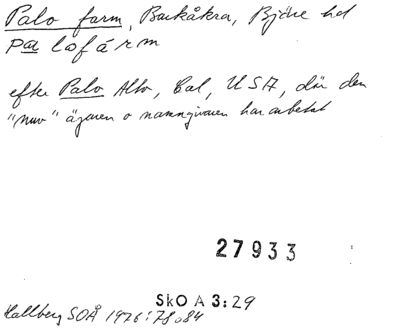 Palo farm, Barkåkra, Bjäre hd
palofárm
efter Palo Alto, Cal, USA, där den
"nuv" ägaren o namngivaren har arbetat
27933
SkO A 3:29
Hallberg SOÅ 1976:78 o 84